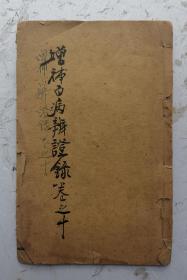 增補百病辨證錄卷之十